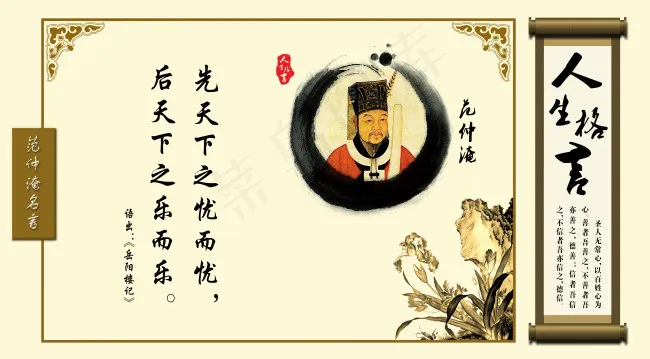 人生格言
圣人无常心,以百姓心为
心 善者吾善之,不善者吾
亦善之,德善;信者吾信
之,不信者吾亦信之,德信。
人生格言
范仲淹
先天下之忧而忧,
后天下之乐而乐。
语出:《岳阳楼记》
范仲淹名言